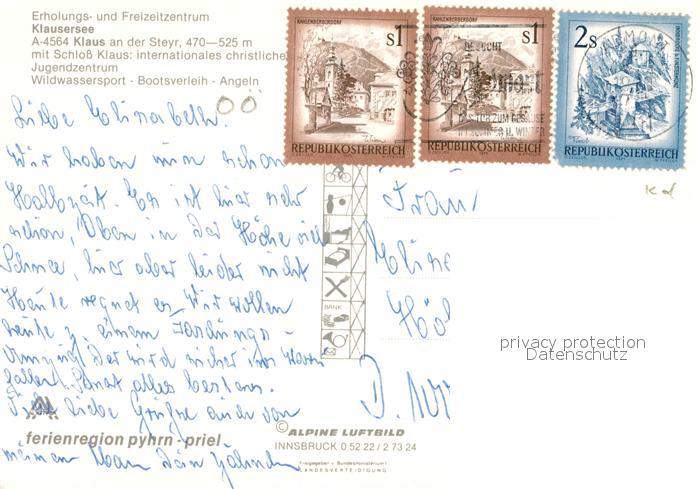 Erholungs- und Freizeitzentrum
Klausersee
A-4564 Klaus an der Steyr, 470—525 m
mit Schloß Klaus: internationales christliche
Jugendzentrum
Wildwassersport - Bootsverleih - Angeln
OÖ
KAHLENBERGERDORF
s1
REPUBLIK ÖSTERREICH
KAHLENBERGERDORF
s1
BESUCHT
REPUBLIK ÖSTERREICH
2s
REPUBLIK ÖSTERREICH
Liebe Elisabeth.
Wir haben nun schon
Halbzeit. Es ist hier sehr
schön, Oben in der Höhe viel
Schnee, hier aber leider nicht
Heute regnet es. Wir wollen
heute zu einem
Der wird sicher ins
fallen. Sonst alles bestens.
Liebe Grüße auch von
meinem Mann Dein
Frau
BANK
privacy protection
Datenschutz
ferienregion pyhrn - priel
© ALPINE LUFTBILD
INNSBRUCK 0 52 22 / 2 73 24
Freigegeben v. Bundesministerium f.
LANDESVERTEIDIGUNG